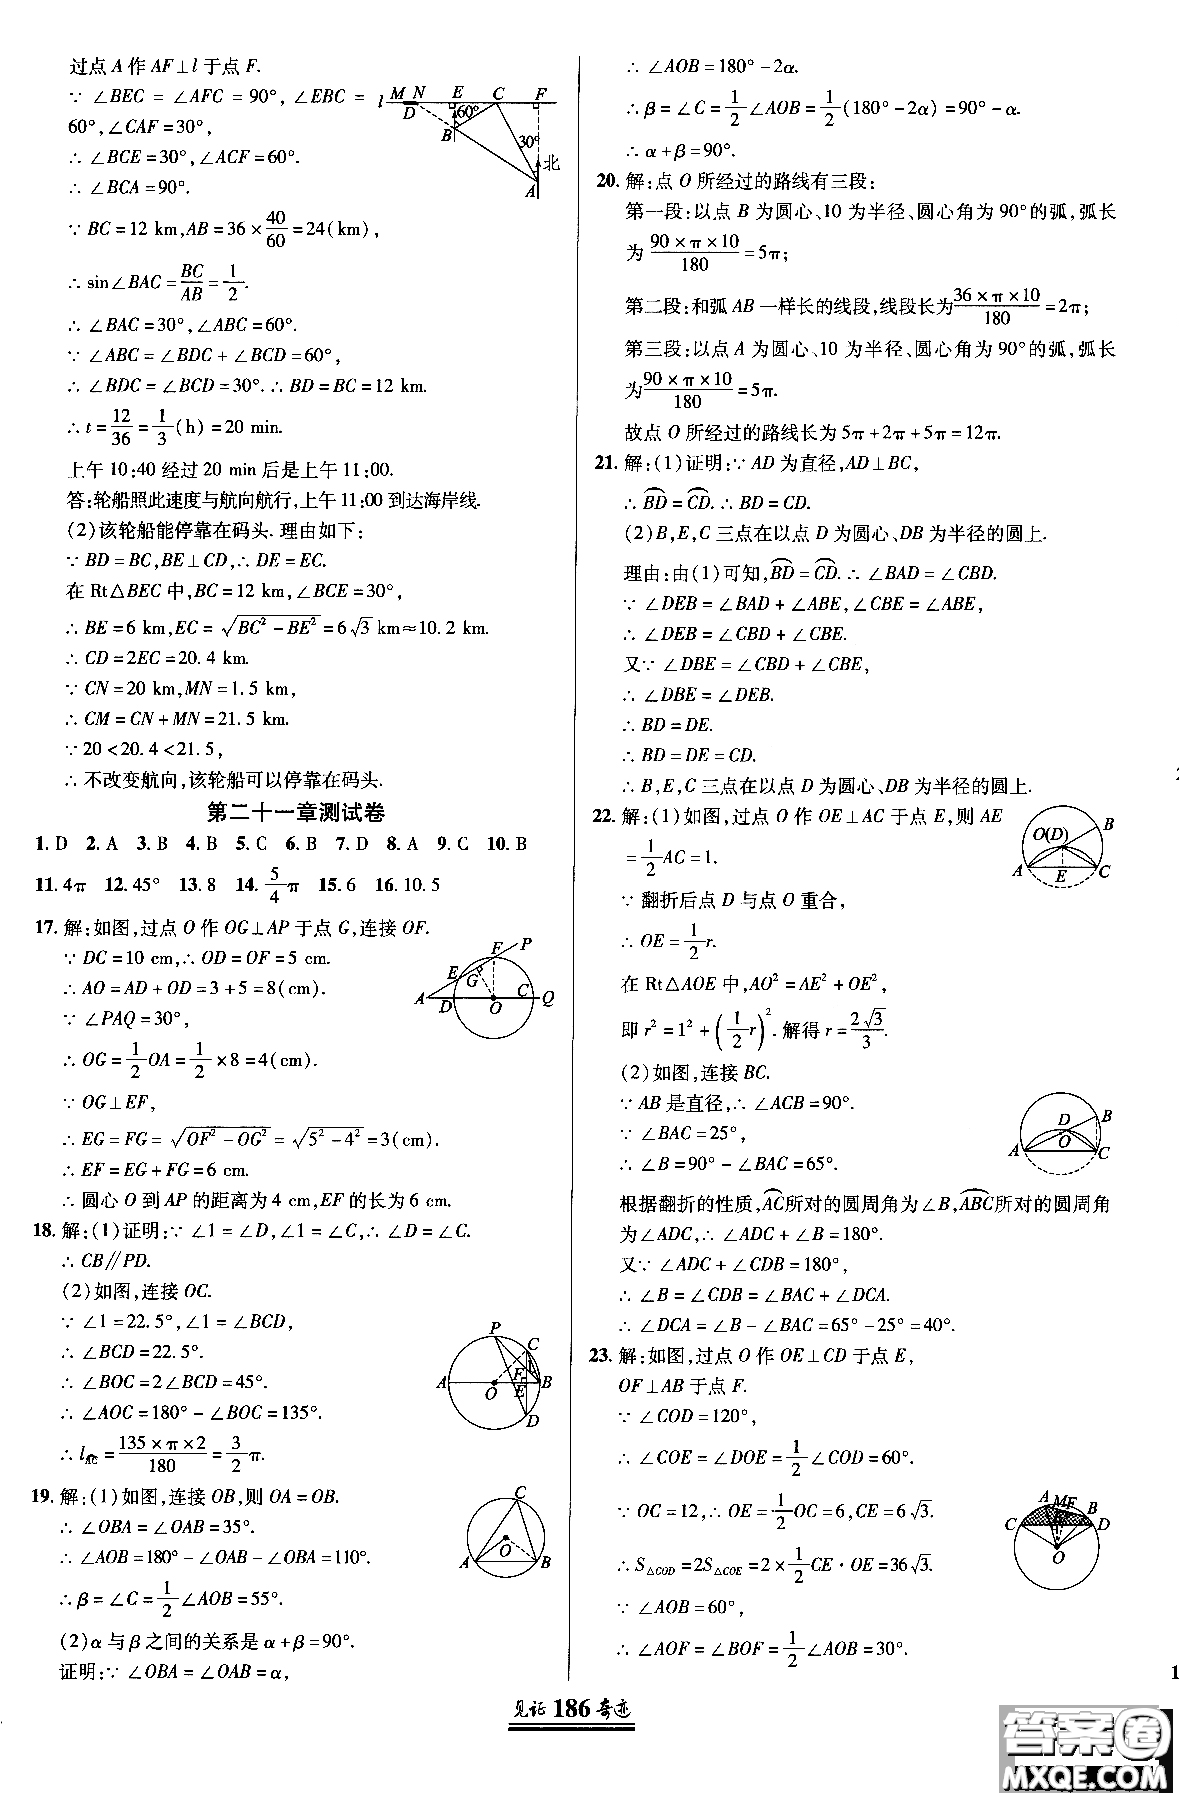 过点A作AF⊥l于点F.
∵∠BEC=∠AFC=90°,∠EBC=
60°,∠CAF=30°,
∴∠BCE=30°,∠ACF=60°.
∴∠BCA=90°.
∵BC=12 km,AB=36×40/60=24(km),
∴sin∠BAC=BC/AB=1/2.
∴∠BAC=30°,∠ABC=60°.
∵∠ABC=∠BDC+∠BCD=60°,
∴∠BDC=∠BCD=30°.∴BD=BC=12 km.
∴t=12/36=1/3(h)=20 min.
上午10:40经过20 min后是上午11:00.
答:轮船照此速度与航向航行,上午11:00到达海岸线.
(2)该轮船能停靠在码头.理由如下:
∵BD=BC,BE⊥CD,∴DE=EC.
在Rt△BEC中,BC=12 km,∠BCE=30°,
∴BE=6 km,EC=√(BC²-BE²)=6√3 km≈10.2 km.
∴CD=2EC=20.4 km.
∵CN=20 km,MN=1.5 km,
∴CM=CN+MN=21.5 km.
∵20<20.4<21.5,
∴不改变航向,该轮船可以停靠在码头.
l M N E C F
D 60° B 30° 北 A
第二十一章测试卷
1. D 2. A 3. B 4. B 5. C 6. B 7. D 8. A 9. C 10. B
11. 4π 12. 45° 13. 8 14. 5/4π 15. 6 16. 10.5
17. 解:如图,过点O作OG⊥AP于点G,连接OF.
∵DC=10 cm,∴OD=OF=5 cm.
∴AO=AD+OD=3+5=8(cm).
∵∠PAQ=30°,
∴OG=1/2OA=1/2×8=4(cm).
∵OG⊥EF,
∴EG=FG=√(OF²-OG²)=√(5²-4²)=3(cm).
∴EF=EG+FG=6 cm.
∴圆心O到AP的距离为4 cm,EF的长为6 cm.
F P E G A D O C Q
18. 解:(1)证明:∵∠1=∠D,∠1=∠C,∴∠D=∠C.
∴CB∥PD.
(2)如图,连接OC.
∵∠1=22.5°,∠1=∠BCD,
∴∠BCD=22.5°.
∴∠BOC=2∠BCD=45°.
∴∠AOC=180°-∠BOC=135°.
∴l⌒AC=135×π×2/180=3/2π.
P C A F B O E D
19. 解:(1)如图,连接OB,则OA=OB.
∴∠OBA=∠OAB=35°.
∴∠AOB=180°-∠OAB-∠OBA=110°.
∴β=∠C=1/2∠AOB=55°.
(2)α与β之间的关系是α+β=90°.
证明:∵∠OBA=∠OAB=α,
C O A B
∴∠AOB=180°-2α.
∴β=∠C=1/2∠AOB=1/2(180°-2α)=90°-α.
∴α+β=90°.
20. 解:点O所经过的路线有三段:
第一段:以点B为圆心、10为半径、圆心角为90°的弧,弧长
为90×π×10/180=5π;
第二段:和弧AB一样长的线段,线段长为36×π×10/180=2π;
第三段:以点A为圆心、10为半径、圆心角为90°的弧,弧长
为90×π×10/180=5π.
故点O所经过的路线长为5π+2π+5π=12π.
21. 解:(1)证明:∵AD为直径,AD⊥BC,
∴⌒BD=⌒CD.∴BD=CD.
(2)B,E,C三点在以点D为圆心、DB为半径的圆上.
理由:由(1)可知,⌒BD=⌒CD.∴∠BAD=∠CBD.
∵∠DEB=∠BAD+∠ABE,∠CBE=∠ABE,
∴∠DEB=∠CBD+∠CBE.
又∵∠DBE=∠CBD+∠CBE,
∴∠DBE=∠DEB.
∴BD=DE.
∴BD=DE=CD.
∴B,E,C三点在以点D为圆心、DB为半径的圆上.
22. 解:(1)如图,过点O作OE⊥AC于点E,则AE
=1/2AC=1.
∵翻折后点D与点O重合,
∴OE=1/2r.
在Rt△AOE中,AO²=AE²+OE²,
即r²=1²+(1/2r)².解得r=2√3/3.
O(D) B A E C
(2)如图,连接BC.
∵AB是直径,∴∠ACB=90°.
∵∠BAC=25°,
∴∠B=90°-∠BAC=65°.
D B O A C
根据翻折的性质,⌒AC所对的圆周角为∠B,⌒ABC所对的圆周角
为∠ADC,∴∠ADC+∠B=180°.
又∵∠ADC+∠CDB=180°,
∴∠B=∠CDB=∠BAC+∠DCA.
∴∠DCA=∠B-∠BAC=65°-25°=40°.
23. 解:如图,过点O作OE⊥CD于点E,
OF⊥AB于点F.
∵∠COD=120°,
∴∠COE=∠DOE=1/2∠COD=60°.
∵OC=12,∴OE=1/2OC=6,CE=6√3.
∴S△COD=2S△COE=2×1/2CE·OE=36√3.
∵∠AOB=60°,
∴∠AOF=∠BOF=1/2∠AOB=30°.
A M F B C D O
见证186奇迹
答案圈
MXQE.COM
1